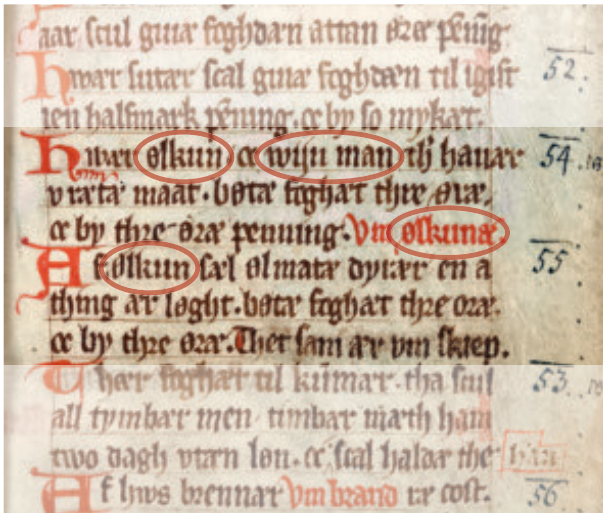 aar scul giuæ foghdæn attan øræ pēnig
Hwær sutær scal giuæ foghdæn til igift
ien halfmark pēning. oc by so mykæt. 52.
Hwær ølkun oc wijn man thꝫ hauær 54.
vrætæ maat. bøtæ foghæt thre øræ.
oc by thre øræ penning. Vm ølkunæ.
Af ølkun sæl øl matæ dyrær en a 55
thing ær løght. bøtæ foghæt thre øræ.
oc by thre øræ. Thet sam ær vm skiep.
Thær foghæt til kūmær. tha scul 53.
all tymbær men timbær mæth ham
two dagh vtæn løn. oc scal haldæ the
Af hws brennær Vm brand ær cost. 56